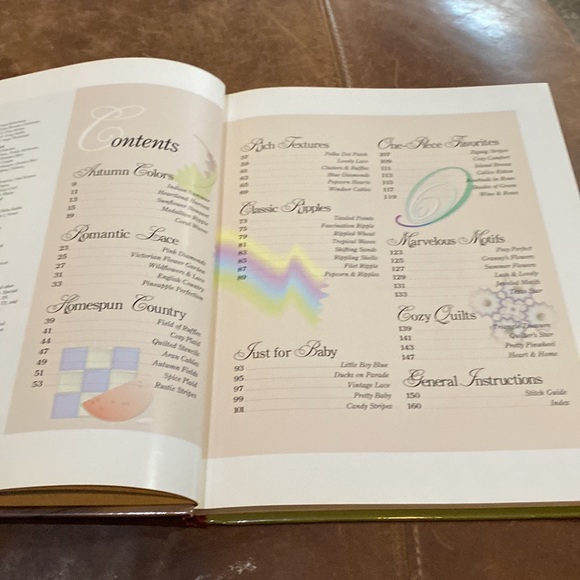 Contents
Autumn Colors
9
11 Heartland Harvest
13 Sunflower Bouquet
15 Medallion Ripple
19 Coral Waves
Romantic Lace
23 Pink Diamonds
25 Victorian Flower Garden
27 Wildflowers & Lace
31 English Country
33 Pineapple Perfection
Homespun Country
39 Field of Ruffles
41 Cozy Plaid
44 Quilted Stencils
47 Aran Cables
49 Autumn Fields
51 Spice Plaid
53 Rustic Stripes
Rich Textures
57 Polka Dot Patch
59 Lovely Lace
61 Clusters & Ruffles
63 Blue Diamonds
65 Popcorn Hearts
69 Windsor Cables
Classic Ripples
73 Tasseled Points
75 Fascination Ripple
79 Rippled Wheat
81 Tropical Waves
83 Shifting Sands
85 Rippling Shells
87 Filet Ripple
89 Popcorn & Ripples
Just for Baby
93 Little Boy Blue
95 Ducks on Parade
97 Vintage Lace
99 Pretty Baby
101 Candy Stripes
One-Piece Favorites
107 Zigzag Stripes
109 Cozy Comfort
111 Island Breeze
113 Cabin Kitten
115
117 Shades of Green
119 Wine & Roses
Marvelous Motifs
123 Posy Perfect
125 Granny's Flowers
127 Summer Flowers
129 Lush & Lovely
131 Jeweled Motifs
133 Star
Cozy Quilts
139 Triangle Treasure
141 Quilter's Star
143 Pretty Pinwheel
147 Heart & Home
General Instructions
150 Stitch Guide
160 Index